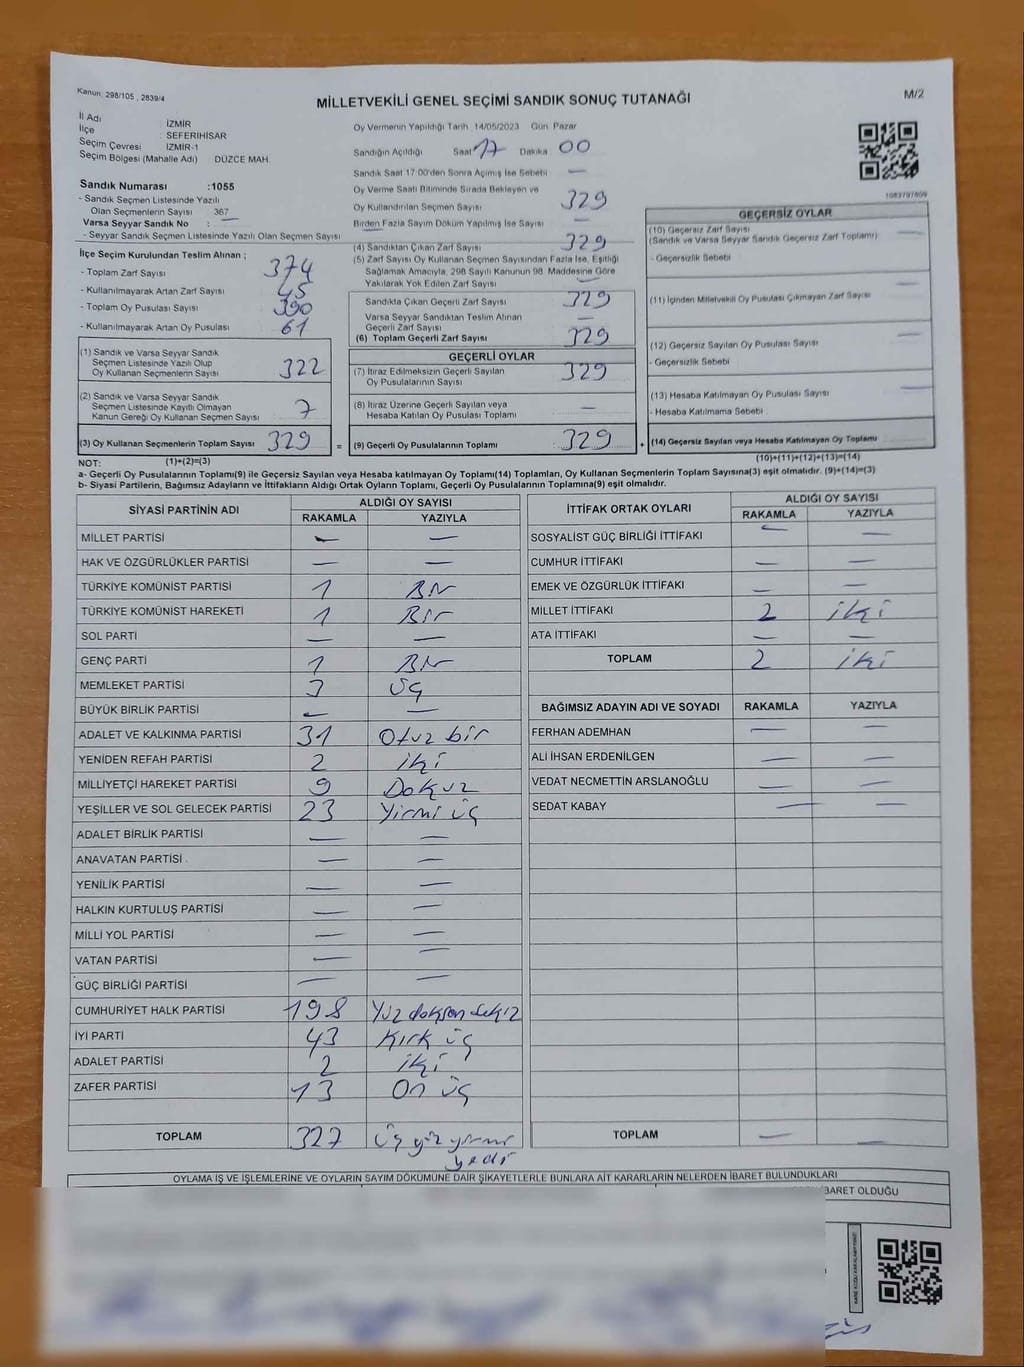 Kanun, 298/105 , 2839/4
MİLLETVEKİLİ GENEL SEÇİMİ SANDIK SONUÇ TUTANAĞI
M/2
İl Adı : İZMİR
İlçe : SEFERİHİSAR
Seçim Çevresi : İZMİR-1
Seçim Bölgesi (Mahalle Adı) DÜZCE MAH.
Sandık Numarası :1055
- Sandık Seçmen Listesinde Yazılı
Olan Seçmenlerin Sayısı 367
Varsa Seyyar Sandık No : —
- Seyyar Sandık Seçmen Listesinde Yazılı Olan Seçmen Sayısı
Oy Vermenin Yapıldığı Tarih 14/05/2023 Gün Pazar
Sandığın Açıldığı Saat 17 Dakika 00
Sandık Saat 17.00'den Sonra Açılmış İse Sebebi —
Oy Verme Saati Bitiminde Sırada Bekleyen ve
Oy Kullandırılan Seçmen Sayısı 329
Birden Fazla Sayım Döküm Yapılmış İse Sayısı —
1083797809
İlçe Seçim Kurulundan Teslim Alınan ;
- Toplam Zarf Sayısı 374
- Kullanılmayarak Artan Zarf Sayısı 45
- Toplam Oy Pusulası Sayısı 390
- Kullanılmayarak Artan Oy Pusulası 61
(1) Sandık ve Varsa Seyyar Sandık
Seçmen Listesinde Yazılı Olup
Oy Kullanan Seçmenlerin Sayısı 322
(2) Sandık ve Varsa Seyyar Sandık
Seçmen Listesinde Kayıtlı Olmayan
Kanun Gereği Oy Kullanan Seçmen Sayısı 7
(3) Oy Kullanan Seçmenlerin Toplam Sayısı 329 =
(4) Sandıktan Çıkan Zarf Sayısı 329
(5) Zarf Sayısı Oy Kullanan Seçmen Sayısından Fazla İse, Eşitliği
Sağlamak Amacıyla, 298 Sayılı Kanunun 98. Maddesine Göre
Yakılarak Yok Edilen Zarf Sayısı —
Sandıkta Çıkan Geçerli Zarf Sayısı 329
Varsa Seyyar Sandıktan Teslim Alınan
Geçerli Zarf Sayısı —
(6) Toplam Geçerli Zarf Sayısı 329
GEÇERLİ OYLAR
(7) İtiraz Edilmeksizin Geçerli Sayılan
Oy Pusulalarının Sayısı 329
(8) İtiraz Üzerine Geçerli Sayılan veya
Hesaba Katılan Oy Pusulası Toplamı —
(9) Geçerli Oy Pusulalarının Toplamı 329 +
GEÇERSİZ OYLAR
(10) Geçersiz Zarf Sayısı
(Sandık ve Varsa Seyyar Sandık Geçersiz Zarf Toplamı) —
- Geçersizlik Sebebi
(11) İçinden Milletvekili Oy Pusulası Çıkmayan Zarf Sayısı —
(12) Geçersiz Sayılan Oy Pusulası Sayısı —
- Geçersizlik Sebebi
(13) Hesaba Katılmayan Oy Pusulası Sayısı —
- Hesaba Katılmama Sebebi
(14) Geçersiz Sayılan veya Hesaba Katılmayan Oy Toplamı —
NOT: (1)+(2)=(3) (10)+(11)+(12)+(13)=(14)
a- Geçerli Oy Pusulalarının Toplamı(9) ile Geçersiz Sayılan veya Hesaba katılmayan Oy Toplamı(14) Toplamları, Oy Kullanan Seçmenlerin Toplam Sayısına(3) eşit olmalıdır. (9)+(14)=(3)
b- Siyasi Partilerin, Bağımsız Adayların ve İttifakların Aldığı Ortak Oyların Toplamı, Geçerli Oy Pusulalarının Toplamına(9) eşit olmalıdır.
SİYASİ PARTİNİN ADI ALDIĞI OY SAYISI
RAKAMLA YAZIYLA
MİLLET PARTİSİ — —
HAK VE ÖZGÜRLÜKLER PARTİSİ — —
TÜRKİYE KOMÜNİST PARTİSİ 1 Bir
TÜRKİYE KOMÜNİST HAREKETİ 1 Bir
SOL PARTİ — —
GENÇ PARTİ 1 Bir
MEMLEKET PARTİSİ 3 üç
BÜYÜK BİRLİK PARTİSİ — —
ADALET VE KALKINMA PARTİSİ 31 Otuz bir
YENİDEN REFAH PARTİSİ 2 iki
MİLLİYETÇİ HAREKET PARTİSİ 9 Dokuz
YEŞİLLER VE SOL GELECEK PARTİSİ 23 Yirmi üç
ADALET BİRLİK PARTİSİ — —
ANAVATAN PARTİSİ — —
YENİLİK PARTİSİ — —
HALKIN KURTULUŞ PARTİSİ — —
MİLLİ YOL PARTİSİ — —
VATAN PARTİSİ — —
GÜÇ BİRLİĞİ PARTİSİ — —
CUMHURİYET HALK PARTİSİ 198 Yüz doksan sekiz
İYİ PARTİ 43 Kırk üç
ADALET PARTİSİ 2 iki
ZAFER PARTİSİ 13 On üç
TOPLAM 327 üç yüz yirmi
yedi
İTTİFAK ORTAK OYLARI ALDIĞI OY SAYISI
RAKAMLA YAZIYLA
SOSYALİST GÜÇ BİRLİĞİ İTTİFAKI — —
CUMHUR İTTİFAKI — —
EMEK VE ÖZGÜRLÜK İTTİFAKI — —
MİLLET İTTİFAKI 2 iki
ATA İTTİFAKI — —
TOPLAM 2 iki
BAĞIMSIZ ADAYIN ADI VE SOYADI RAKAMLA YAZIYLA
FERHAN ADEMHAN — —
ALİ İHSAN ERDENİLGEN — —
VEDAT NECMETTİN ARSLANOĞLU — —
SEDAT KABAY — —
TOPLAM — —
OYLAMA İŞ VE İŞLEMLERİNE VE OYLARIN SAYIM DÖKÜMÜNE DAİR ŞİKAYETLERLE BUNLARA AİT KARARLARIN NELERDEN İBARET BULUNDUKLARI
İBARET OLDUĞU